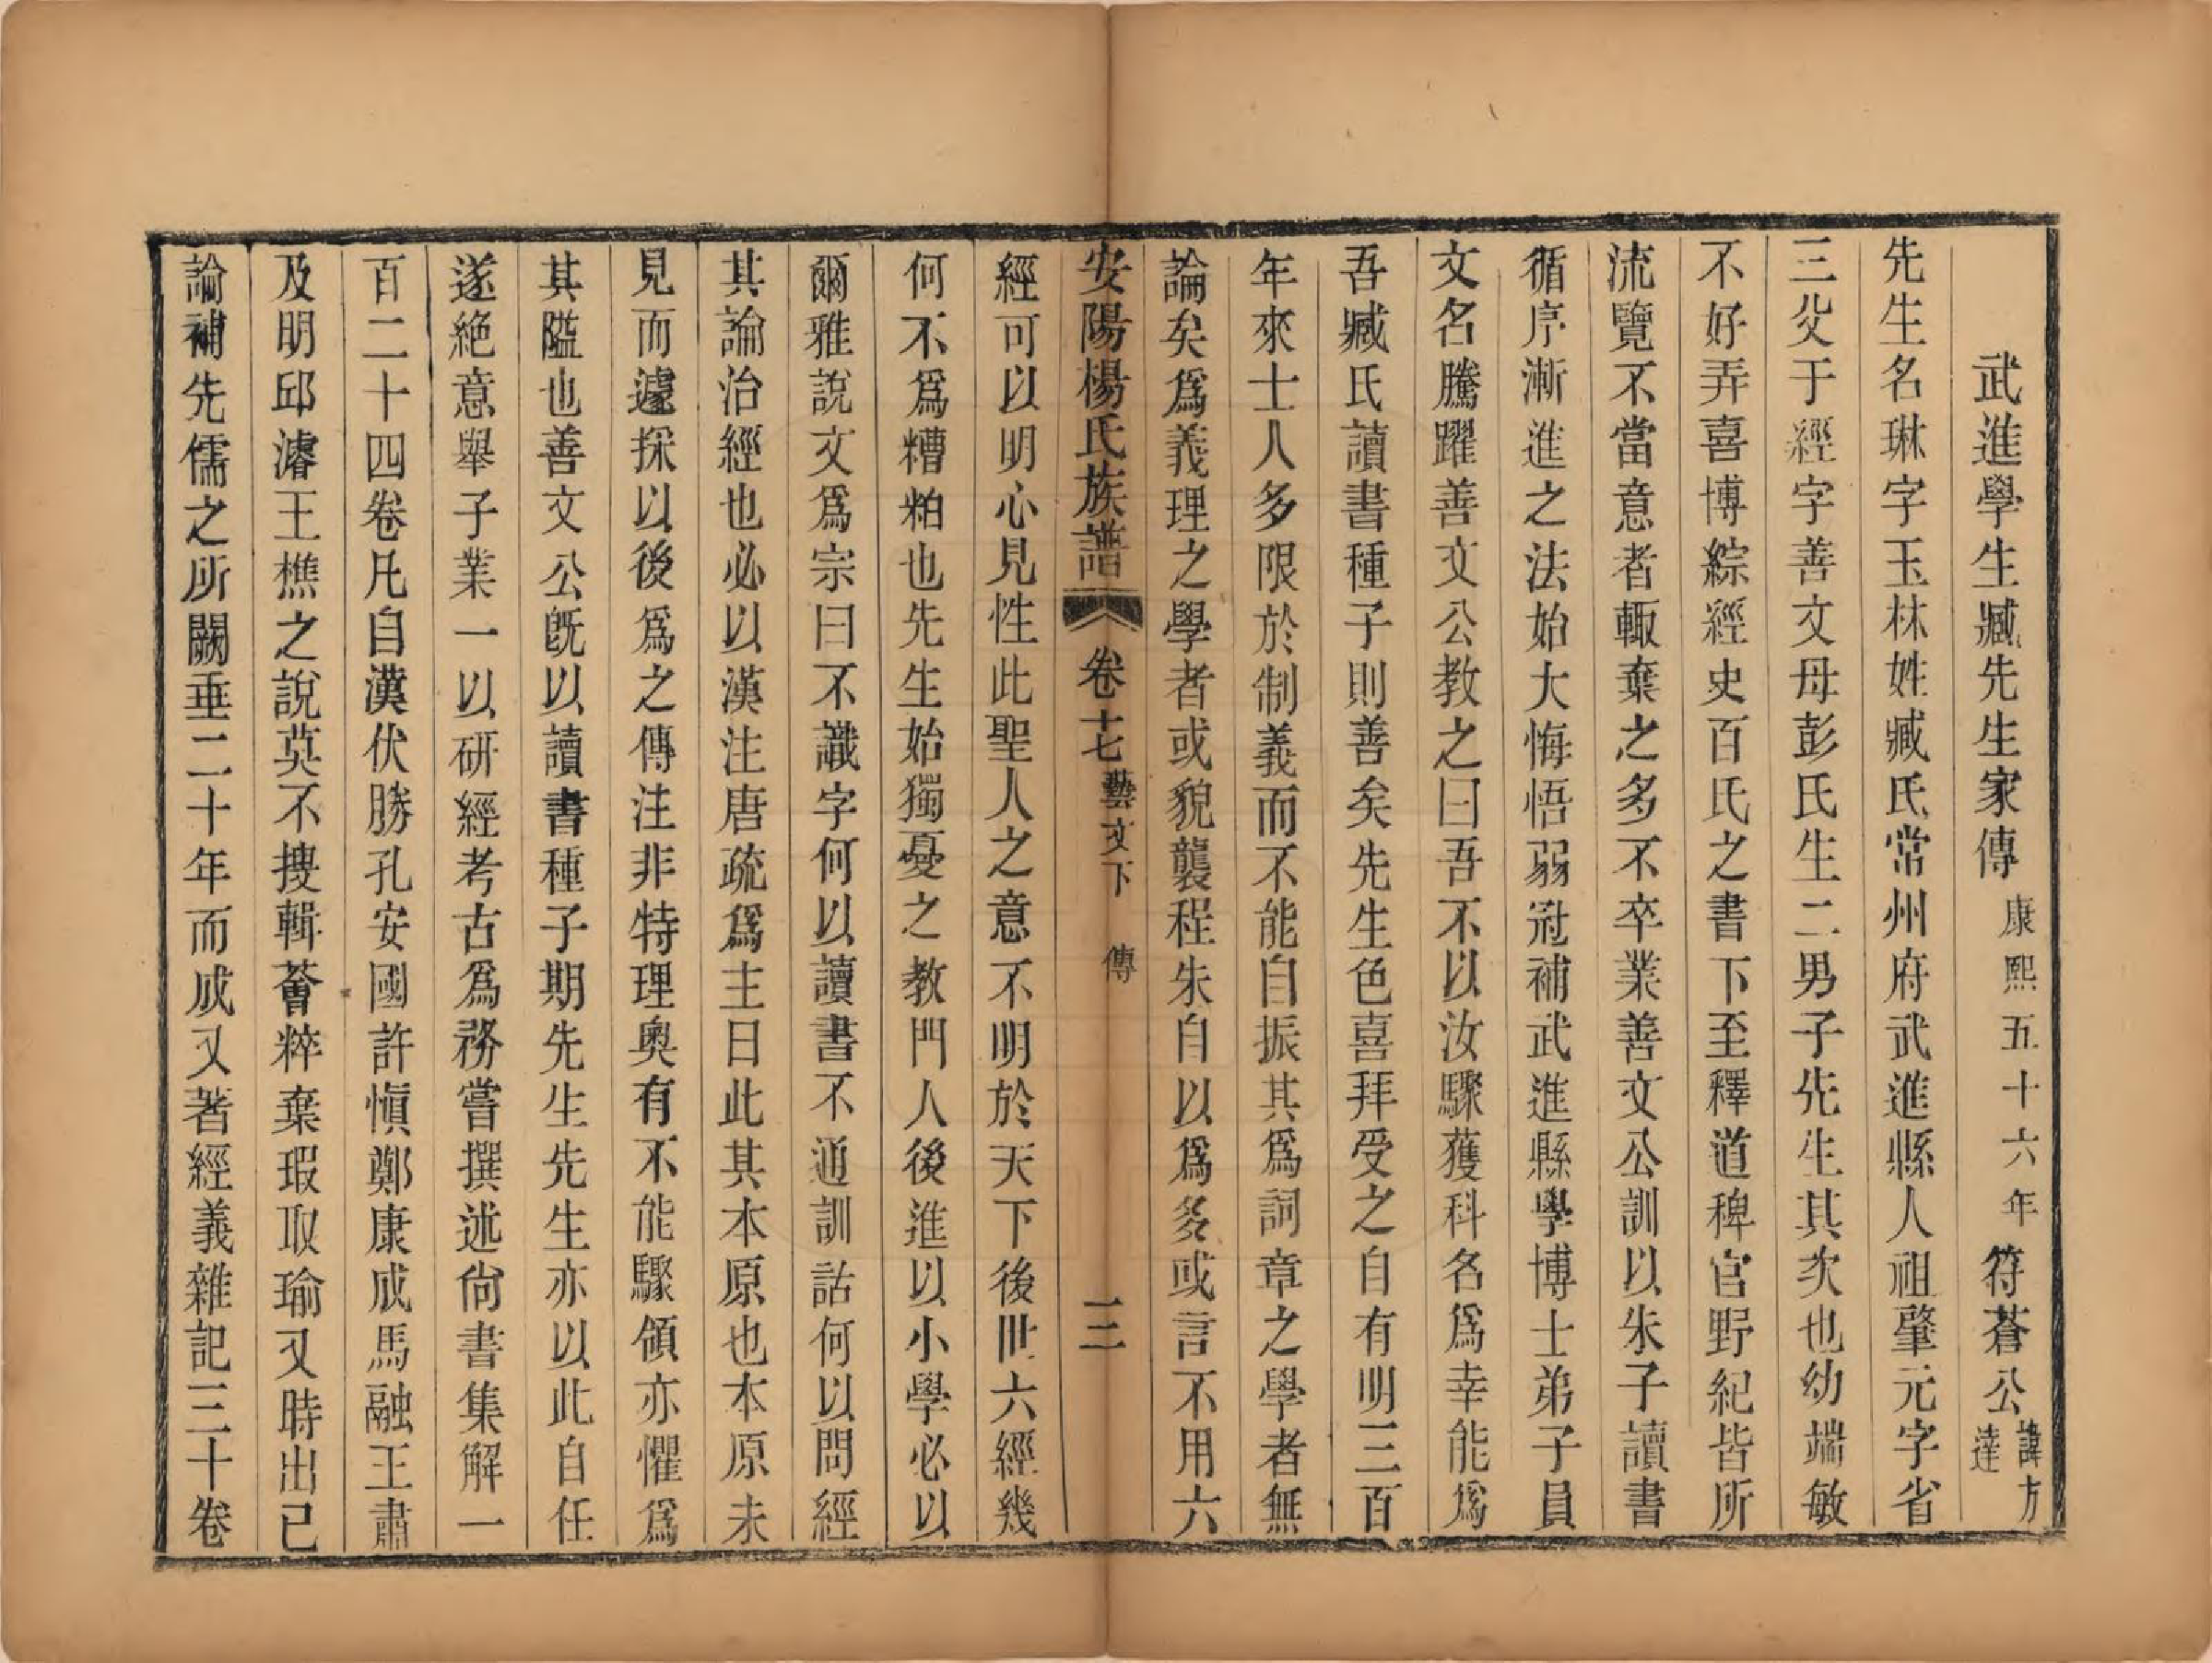 武進學生臧先生家傳康熙五十六年符蒼公諱方達
先生名琳字玉林姓臧氏常州府武進縣人祖肇元字省
三父于經字善文母彭氏生二男子先生其次也幼端敏
不好弄喜博綜經史百氏之書下至釋道稗官野紀皆所
流覽不當意者輒棄之多不卒業善文公訓以朱子讀書
循序漸進之法始大悔悟弱冠補武進縣學博士弟子員
文名騰躍善文公教之曰吾不以汝驟獲科名爲幸能爲
吾臧氏讀書種子則善矣先生色喜拜受之自有明三百
年來士人多限於制義而不能自振其爲詞章之學者無
論矣爲義理之學者或貌襲程朱自以爲多或言不用六
安陽楊氏族譜 卷十七 藝文下 傳 三
經可以明心見性此聖人之意不明於天下後世六經幾
何不爲糟粕也先生始獨憂之教門人後進以小學必以
爾雅說文爲宗曰不識字何以讀書不通訓詁何以問經
其論治經也必以漢注唐疏爲主日此其本原也本原未
見而遽探以後爲之傳注非特理奧有不能驟領亦懼爲
其隘也善文公旣以讀書種子期先生先生亦以此自任
遂絕意舉子業一以研經考古爲務嘗撰述尙書集解一
百二十四卷凡自漢伏勝孔安國許愼鄭康成馬融王肅
及明邱濬王樵之說莫不搜輯薈粹棄瑕取瑜又時出己
論補先儒之所闕垂二十年而成又著經義雜記三十卷